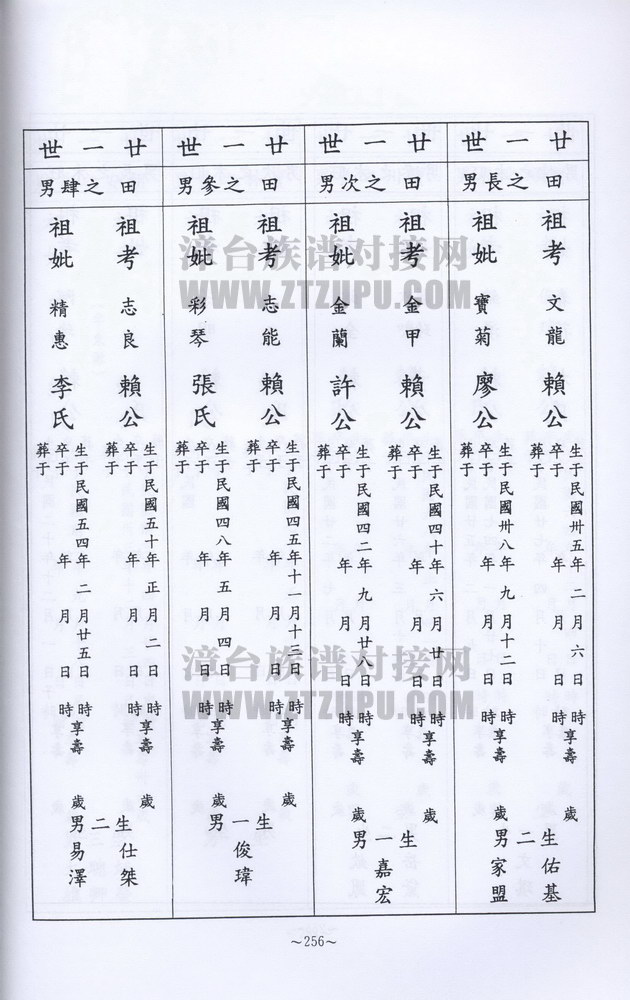 廿一世
田之長男
祖考 文龍 賴公
生于民國卅五年二月六日時享壽歲
卒于年月日
葬于
祖妣 寶菊 廖公
生于民國卅八年九月十二日時享壽歲
卒于年月日
葬于
生二男
佑基
家盟
廿一世
田之次男
祖考 金甲 賴公
生于民國四十年六月廿日時享壽歲
卒于年月日
葬于
祖妣 金蘭 許公
生于民國四二年九月廿八日時享壽歲
卒于年月日
葬于
生一男
嘉宏
廿一世
田之參男
祖考 志能 賴公
生于民國四五年十一月十三日時享壽歲
卒于年月日
葬于
祖妣 彩琴 張氏
生于民國四八年五月四日時享壽歲
卒于年月日
葬于
生一男
俊瑋
廿一世
田之肆男
祖考 志良 賴公
生于民國五十年正月二日時享壽歲
卒于年月日
葬于
祖妣 精惠 李氏
生于民國五四年二月廿五日時享壽歲
卒于年月日
葬于
生二男
仕桀
易澤
～256～
漳台族谱对接网
WWW.ZTZUPU.COM
漳台族谱对接网
WWW.ZTZUPU.COM